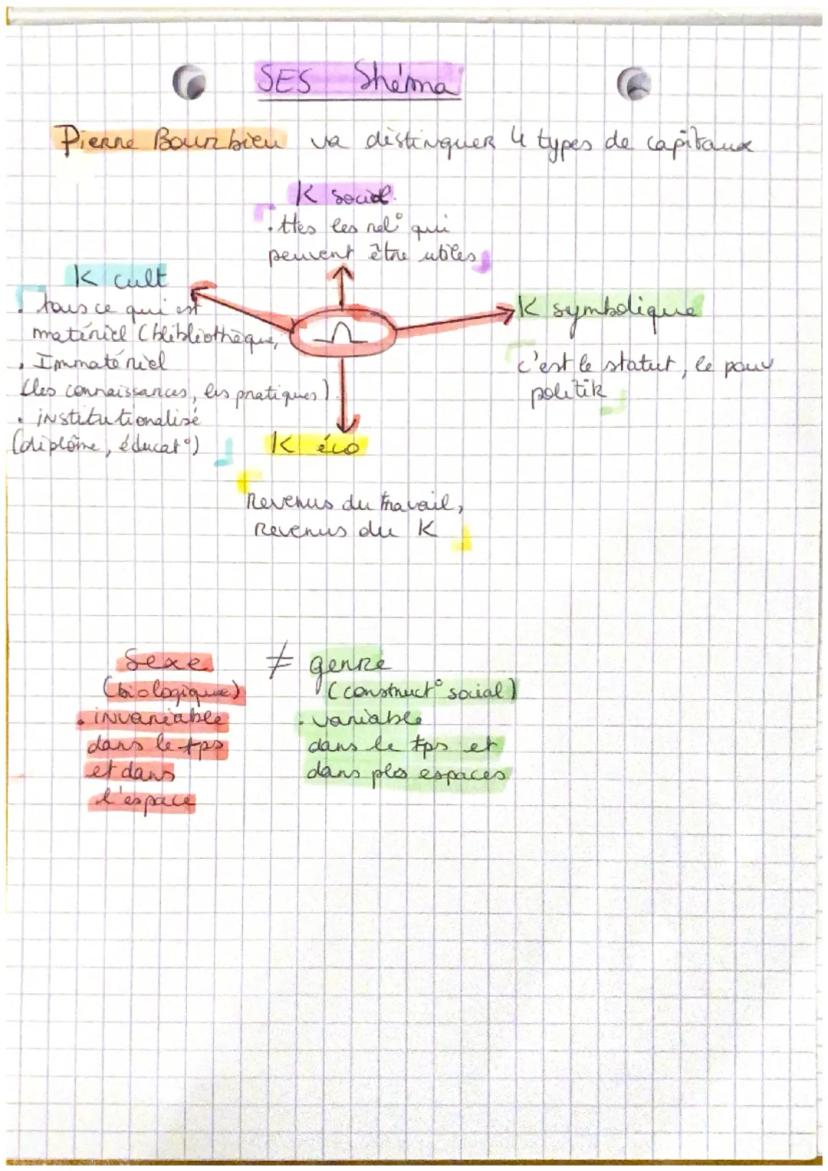 SES Shéma
Pierre Bourbieu va distinguer 4 types de capitaux
K social
. ttes les rel° qui
peuvent être utiles
K cult
. tous ce qui est
matériel (blibliothèque,
. Immatériel
(les connaissances, les pratiques)
. institutionalisé
(diplôme, éducat°)
K symbolique
c'est le statut, le pouv
politik
K éco
Revenus du travail,
Revenus du K
Sexe ≠ genre
(biologique) (construct° social)
. invariable . variable
dans le tps dans le tps et
et dans dans pls espaces
l'espace